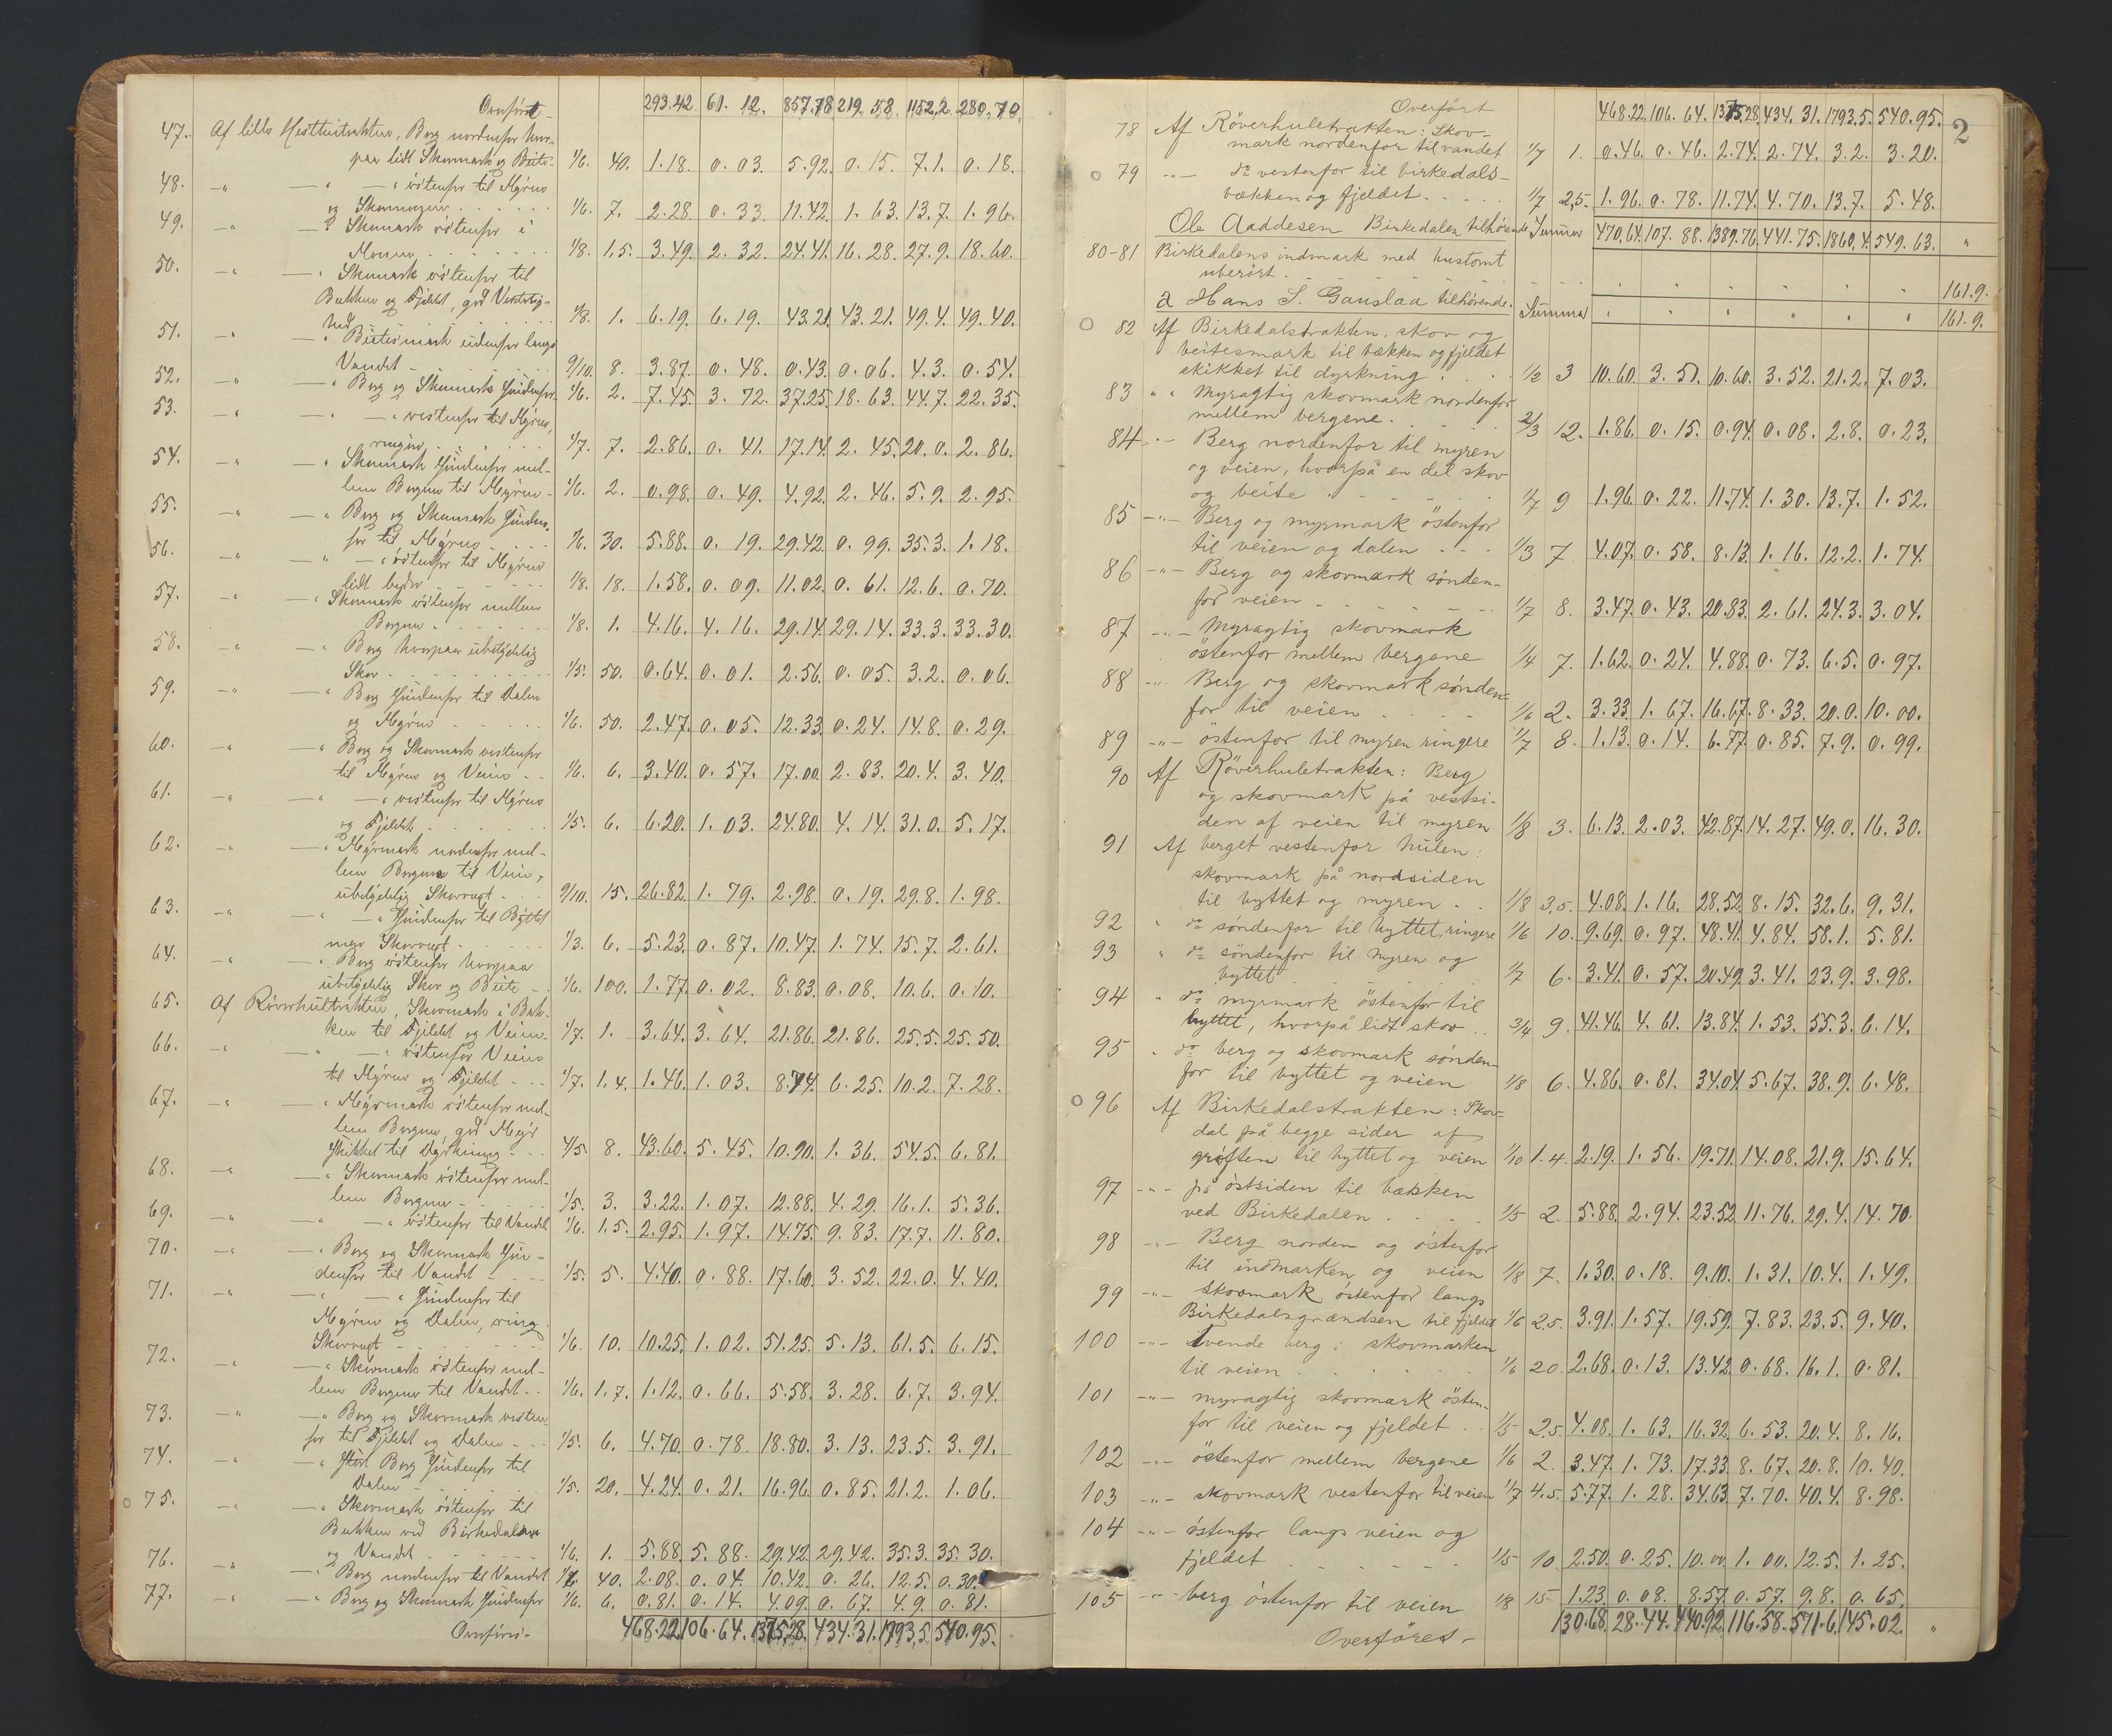 Overført - 293.42. 61. 12. 857.78 219. 58. 1152,2. 280,70.
47. Af lille Hesttestrakten, Berg nordenfor hvor-
paa lidt Skovmark og Beite- 1/6. 40. 1.18. 0. 03. 5.92. 0. 15. 7.1. 0. 18.
48. —„ — „ —„ østenfor til Myren
og Skovmarken . . . 1/6. 7. 2.28. 0. 33. 11.42. 1. 63. 13.7. 1. 96.
49. —„ —„ Skovmark østenfor i
Myren . . . 1/8. 1,5. 3.49. 2. 32. 24.41. 16. 28. 27.9. 18. 60.
50. —„ —„ Skovmark østenfor til
Bækken og Fjeldet, god Vextelig-
hed . . . 1/8. 1. 6.19. 6. 19. 43.21. 43. 21. 49.4. 49. 40.
51. —„ —„ Beitesmark sudenfor langs
Vandet . . . 9/10. 8. 3.87. 0. 48. 0.43. 0. 06. 4.3. 0. 54.
52. —„ „ Berg og Skovmark søndenfor 1/6. 2. 7.45. 3. 72. 37.25. 18. 63. 44.7. 22. 35.
53. —„ —„ —„ vestenfor til Myren,
ringere . . . 1/7. 7. 2.86. 0. 41. 17.14. 2. 45. 20. 0. 2. 86.
54. —„ —„ Skovmark søndenfor mel-
lem Bergene til Myren - 1/6. 2. 0.98. 0. 49. 4.92. 2. 46. 5. 9. 2. 95.
55. —„ —„ Berg og Skovmark sønden-
for til Myren . . . 1/6. 30. 5.88. 0. 19. 29.42. 0. 99. 35.3. 1. 18.
56. —„ —„ —„ østenfor til Myren
lidt bedre . . . 1/8. 18. 1.58. 0. 09. 11.02. 0. 61. 12. 6. 0. 70.
57. —„ —„ Skovmark østenfor mellem
Bergene . . . 1/8. 1. 4.16. 4. 16. 29.14. 29. 14. 33.3. 33. 30.
58. —„ —„ Berg hvorpaa ubetydelig
Skov . . . 1/5. 50. 0.64. 0. 01. 2.56. 0. 05. 3.2. 0. 06.
59. —„ —„ Berg søndenfor til Dalen
og Myren . . . 1/6. 50. 2.47. 0. 05. 12.33. 0. 24. 14.8. 0. 29.
60. —„ —„ Berg og Skovmark vestenfor
til Myren og Veien - - 1/6. 6. 3.40. 0. 57. 17.00. 2. 83. 20.4. 3. 40.
61. —„ —„ —„ vestenfor til Myren
og Fjeldet . . . 1/5. 6. 6.20. 1. 03. 24.80. 4. 14. 31.0. 5. 17.
62. —„ —„ Myrmark nordenfor mel-
lem Bergene til Veien,
ubetydelig Skovvegt . . 9/10. 15. 26.82. 1. 79. 2.98. 0. 19. 29.8. 1. 98.
63. —„ —„ —„ søndenfor til Byttet
mer Skovvegt . . . 1/3. 6. 5.23. 0. 87. 10.47. 1. 74. 15.7. 2. 61.
64. —„ —„ Berg østenfor hvorpaa
ubetydelig Skov og Beite - 1/6. 100. 1.77. 0. 02. 8.83. 0. 08. 10.6. 0. 10.
65. Af Röverhuletrakten, Skovmark i Bak-
ken til Fjeldet og Veien- 1/7. 1. 3.64. 3. 64. 21.86. 21. 86. 25.5. 25. 50.
66. —„ „ —„ østenfor Veien
til Myren og Fjeldet - - - 1/7. 1.4. 1.46. 1. 03. 8.74. 6. 25. 10.2. 7. 28.
67. —„ —„ Myrmark østenfor mel-
lem Bergene, god Myr
skikket til Dyrkning - - 4/5. 8. 43.60. 5. 45. 10.90. 1. 36. 54.5. 6. 81.
68. —„ —„ Skovmark østenfor mel-
lem Bergene . . . 1/5. 3. 3.22. 1. 07. 12.88. 4. 29. 16.1. 5. 36.
69. —„ „ —„ østenfor til Vandet 1/6. 1.5. 2.95. 1. 97. 14.75. 9. 83. 17.7. 11. 80.
70. —„ —„ Berg og Skovmark søn-
denfor til Vandet - - - 1/5. 5. 4.40. 0. 88. 17.60. 3. 52. 22.0. 4. 40.
71. —„ —„ —„ søndenfor til
Myren og Dalen, ring.
Skovvegt . . . 1/6. 10. 10.25. 1. 02. 51.25. 5. 13. 61.5. 6. 15.
72. —„ —„ Skovmark østenfor mel-
lem Bergene til Vandet - - 1/6. 1.7. 1.12. 0. 66. 5.58. 3. 28. 6.7. 3. 94.
73. —„ —„ Berg og Skovmark vesten-
for til Fjeldet og Dalen - - - 1/5. 6. 4.70. 0. 78. 18.80. 3. 13. 23.5. 3. 91.
74. —„ —„ Stort Berg søndenfor til
Dalen . . . 1/5. 20. 4.24. 0. 21. 16.96. 0. 85. 21.2. 1. 06.
o 75. —„ —„ Skovmark østenfor til
Bækken ved Birkedalen
og Vandet . . . 1/6. 1. 5.88. 5. 88. 29.42. 29. 42. 35.3. 35. 30.
76. —„ —„ Berg nordenfor til Vandet 1/6. 40. 2.08. 0. 04. 10.42. 0. 26. 12.5. 0. 30.
77. —„ —„ Berg og Skovmark søndenfor 1/6. 6. 0.81. 0. 14. 4.09. 0. 67. 4.9. 0. 81.
Overføres - 468.22. 106. 64. 1375.28. 434. 31. 1793,5. 540.95.
Overført 468.22. 106. 64. 1375.28. 434. 31. 1793.5. 540.95. 2
78 Af Röverhuletrakten: Skov-
mark nordenfor til vandet 1/7 1. 0.46. 0. 46. 2.74. 2. 74. 3.2. 3. 20.
o 79 -„- do vestenfor til birkedals-
bækken og fjeldet . . . 1/7 2,5. 1. 96. 0. 78. 11.74. 4. 70. 13.7. 5. 48.
Ole Aaddesen Birkedalen tilhørende Summa 470.64. 107. 88. 1389.76. 441. 75. 1860,4. 549. 63. „
80-81 Birkedalens indmark med hustomt
uberört . . . 161.9.
a Hans S. Gauslaa tilhørende. Summa 161.9.
o 82 Af Birkedalstrakten, skov og
beitesmark til bækken og fjeldet
skikket til dyrkning . . . 1/2 3 10.60. 3. 51. 10.60. 3. 52. 21.2. 7. 03.
83 „ „ Myragtig skovmark nordenfor
mellem bergene . . . 2/3 12. 1.86. 0. 15. 0.94. 0. 08. 2.8. 0. 23.
84 -„- Berg nordenfor til myren
og veien, hvorpå en del skov
og beite . . . 1/7 9 1.96. 0. 22. 11.74. 1. 30. 13.7. 1. 52.
85 -„- Berg og myrmark östenfor
til veien og dalen . . . 1/3 7 4.07. 0. 58. 8.13. 1. 16. 12.2. 1. 74.
86 -„- Berg og skovmark sønden-
for veien . . . 1/7 8. 3.47. 0. 43. 20.83. 2. 61. 24.3. 3. 04.
87 -„- Myragtig skovmark
östenfor mellem bergene 1/4 7. 1.62. 0. 24. 4.88. 0. 73. 6.5. 0. 97.
88 -„- Berg og skovmark sønden-
for til veien . . . 1/6 2. 3.33. 1. 67. 16.67. 8. 33. 20.0. 10. 00.
89 -„- östenfor til myren ringere 1/7 8. 1.13. 0. 14. 6.77. 0. 85. 7. 9. 0. 99.
90 Af Röverhuletrakten: Berg
og skovmark på vestsi-
den af veien til myren 1/8 3. 6.13. 2. 03. 42.87. 14. 27. 49.0. 16. 30.
91 Af berget vestenfor hulen:
skovmark på nordsiden
til byttet og myren . . 1/8 3,5. 4.08. 1. 16. 28.52. 8. 15. 32.6. 9. 31.
92 „ do søndenfor til byttet, ringere 1/6 10. 9.69. 0. 97. 48.41. 4. 84. 58.1. 5. 81.
93 „ do söndenfor til myren og
byttet . . . 1/7 6. 3.41. 0. 57. 20.49. 3. 41. 23.9. 3. 98.
94 „ do myrmark östenfor til
byttet, hvorpå lidt skov . . 3/4 9. 41.46. 4. 61. 13.84. 1. 53. 55.3. 6. 14.
95 „ do berg og skovmark sønden-
for til byttet og veien 1/8 6. 4.86. 0. 81. 34.04. 5. 67. 38. 9. 6. 48.
o 96 Af Birkedalstrakten: Skov-
dal på begge sider af
grøften til byttet og veien 1/10 1.4. 2.19. 1. 56. 19.71. 14. 08. 21.9. 15. 64.
97 -„- på östsiden til bækken
ved Birkedalen . . . 1/5 2. 5.88. 2. 94. 23.52. 11. 76. 29.4. 14. 70.
98 -„- Berg norden og østenfor
til indmarken og veien 1/8 7. 1.30. 0. 18. 9.10. 1. 31. 10.4. 1. 49.
99 -„- skovmark østenfor langs
Birkedalsgrændsen til fjeldet 1/6 2.5. 3.91. 1. 57. 19.59. 7. 83. 23.5. 9. 40.
100 -„- tvende berg i skovmarken
til veien . . . 1/6 20. 2.68. 0. 13. 13.42. 0. 68. 16. 1. 0. 81.
101 -„- myragtig skovmark östen-
for til veien og fjeldet . . 1/5 2.5. 4.08. 1. 63. 16.32. 6. 53. 20.4. 8. 16.
102 -„- östenfor mellem bergene 1/6 2. 3.47. 1. 73. 17.33. 8. 67. 20. 8. 10. 40.
103 -„- skovmark vestenfor til veien 1/7 4.5. 5.77. 1. 28. 34.63. 7. 70. 40.4. 8. 98.
104 -„- østenfor langs veien og
fjeldet . . . 1/5 10. 2.50. 0. 25. 10.00. 1. 00. 12.5. 1. 25.
105 -„- berg östenfor til veien 1/8 15 1.23. 0. 08. 8.57. 0. 57. 9.8. 0. 65.
Overføres - 130.68. 28. 44. 440.92. 116. 58. 571.6. 145. 02. „